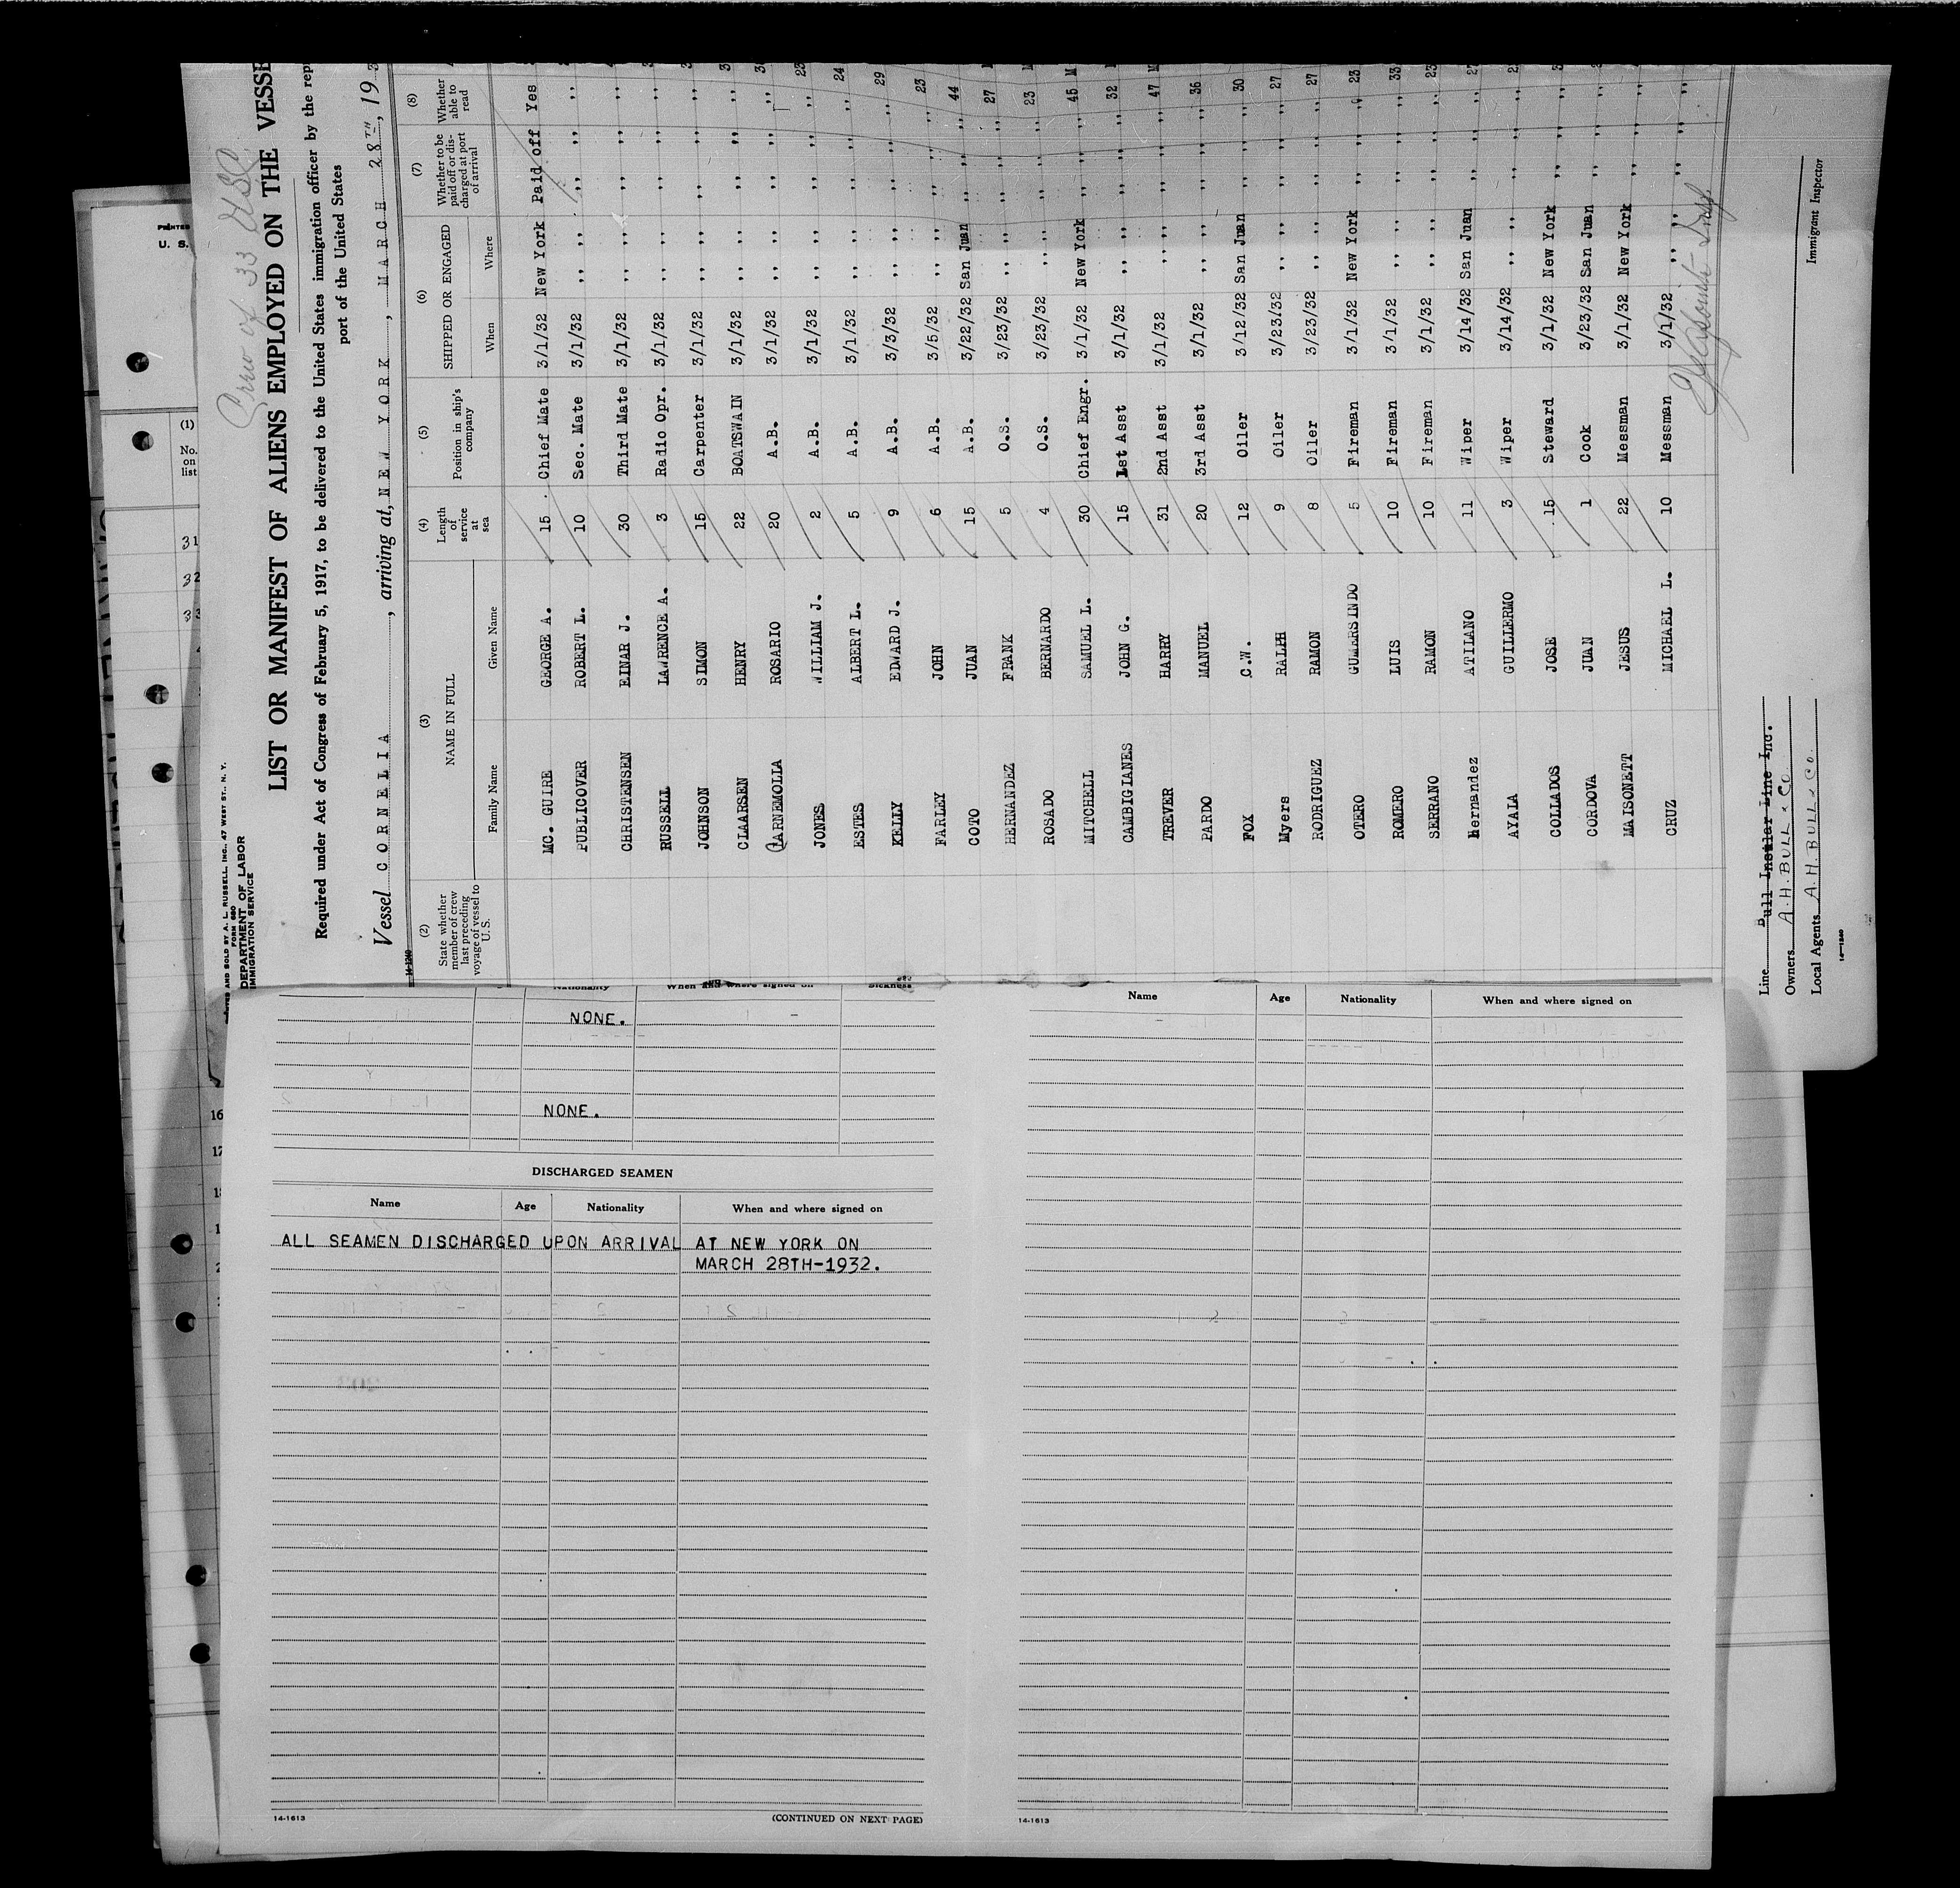 Crew of 33 USC
PRINTED AND SOLD BY A. L. RUSSELL, INC., 47 WEST ST., N. Y.
FORM 680
DEPARTMENT OF LABOR
IMMIGRATION SERVICE
LIST OR MANIFEST OF ALIENS EMPLOYED ON THE
Required under Act of Congress of February 5, 1917, to be delivered to the United States immigration officer by the
port of the United States
Vessel CORNELIA, arriving at, NEW YORK, MARCH 28TH, 19
14-1240
(2) (3) (4) (5) (6) (7) (8)
State whether member of crew last preceding voyage of vessel to U.S. NAME IN FULL Length of service at sea Position in ship's company SHIPPED OR ENGAGED Whether to be paid off or discharged at port of arrival Whether able to read
Family Name Given Name When Where
MC. GUIRE GEORGE A. 15 Chief Mate 3/1/32 New York Paid off Yes
PUBLICOVER ROBERT L. 10 Sec. Mate 3/1/32 ,, ,, ,, ,, ,,
CHRISTENSEN EINAR J. 30 Third Mate 3/1/32 ,, ,, ,, ,, ,,
RUSSELL LAWRENCE A. 3 Radio Opr. 3/1/32 ,, ,, ,, ,, ,,
JOHNSON SIMON 15 Carpenter 3/1/32 ,, ,, ,, ,, ,,
CLAARSEN HENRY 22 BOATSWAIN 3/1/32 ,, ,, ,, ,, ,,
CARNEMOLLA ROSARIO 20 A.B. 3/1/32 ,, ,, ,, ,, ,,
JONES WILLIAM J. 2 A.B. 3/1/32 ,, ,, ,, ,, ,, 23
ESTES ALBERT L. 5 A.B. 3/1/32 ,, ,, ,, ,, ,, 24
KELLY EDWARD J. 9 A.B. 3/3/32 ,, ,, ,, ,, ,, 29
FARLEY JOHN 6 A.B. 3/5/32 ,, ,, ,, ,, ,, 23
COTO JUAN 15 A.B. 3/22/32 San Juan ,, ,, ,, 44
HERNANDEZ FRANK 5 O.S. 3/23/32 ,, ,, ,, ,, ,, 27
ROSADO BERNARDO 4 O.S. 3/23/32 ,, ,, ,, ,, ,, 23
MITCHELL SAMUEL L. 30 Chief Engr. 3/1/32 New York ,, ,, ,, 45 M
CAMBIGIANES JOHN G. 15 1st Asst 3/1/32 ,, ,, ,, ,, ,, 32
TREVER HARRY 31 2nd Asst 3/1/32 ,, ,, ,, ,, ,, 47
PARDO MANUEL 20 3rd Asst 3/1/32 ,, ,, ,, ,, ,, 36
FOX C.W. 12 Oiler 3/12/32 San Juan ,, ,, ,, 30
Myers RALPH 9 Oiler 3/23/32 ,, ,, ,, ,, ,, 27
RODRIGUEZ RAMON 8 Oiler 3/23/32 ,, ,, ,, ,, ,, 27
OTERO GUMERSINDO 5 Fireman 3/1/32 New York ,, ,, ,, 23
ROMERO LUIS 10 Fireman 3/1/32 ,, ,, ,, ,, ,, 33
SERRANO RAMON 10 Fireman 3/1/32 ,, ,, ,, ,, ,, 23
Hernandez ATILANO 11 Wiper 3/14/32 San Juan ,, ,, ,, 27
AYALA GUILLERMO 3 Wiper 3/14/32 ,, ,, ,, ,, ,,
COLLADOS JOSE 15 Steward 3/1/32 New York ,, ,, ,,
CORDOVA JUAN 1 Cook 3/23/32 San Juan ,, ,, ,,
MAISONETT JESUS 22 Messman 3/1/32 New York ,, ,, ,,
CRUZ MICHAEL L. 10 Messman 3/1/32 ,, ,, ,, ,, ,,
Line Bull Insular Line Inc.
Owners A.H. BULL & Co.
Local Agents A.H. BULL & Co.
14-1240
Immigrant Inspector
PRINTED
U. S.
(1)
No. on list
31
32
33
16
Nationality When and where signed on Sickness
NONE.
NONE.
DISCHARGED SEAMEN
Name Age Nationality When and where signed on
ALL SEAMEN DISCHARGED UPON ARRIVAL AT NEW YORK ON
MARCH 28TH-1932.
14-1613
(CONTINUED ON NEXT PAGE)
Name Age Nationality When and where signed on
14-1613